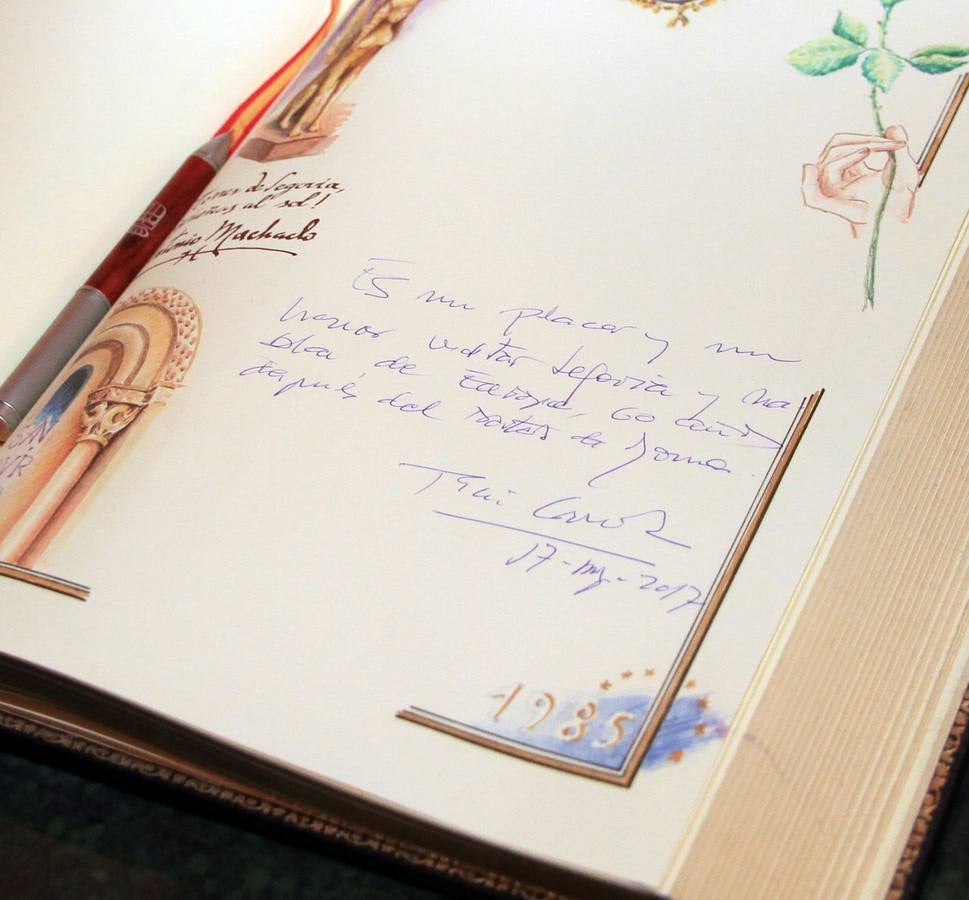 de Segovia,
al sol!
Machado
Es un placer y un
honor visitar Segovia y ha
blar de Europa, 60 años
después del Tratado de Roma.
17-my-2017
1985